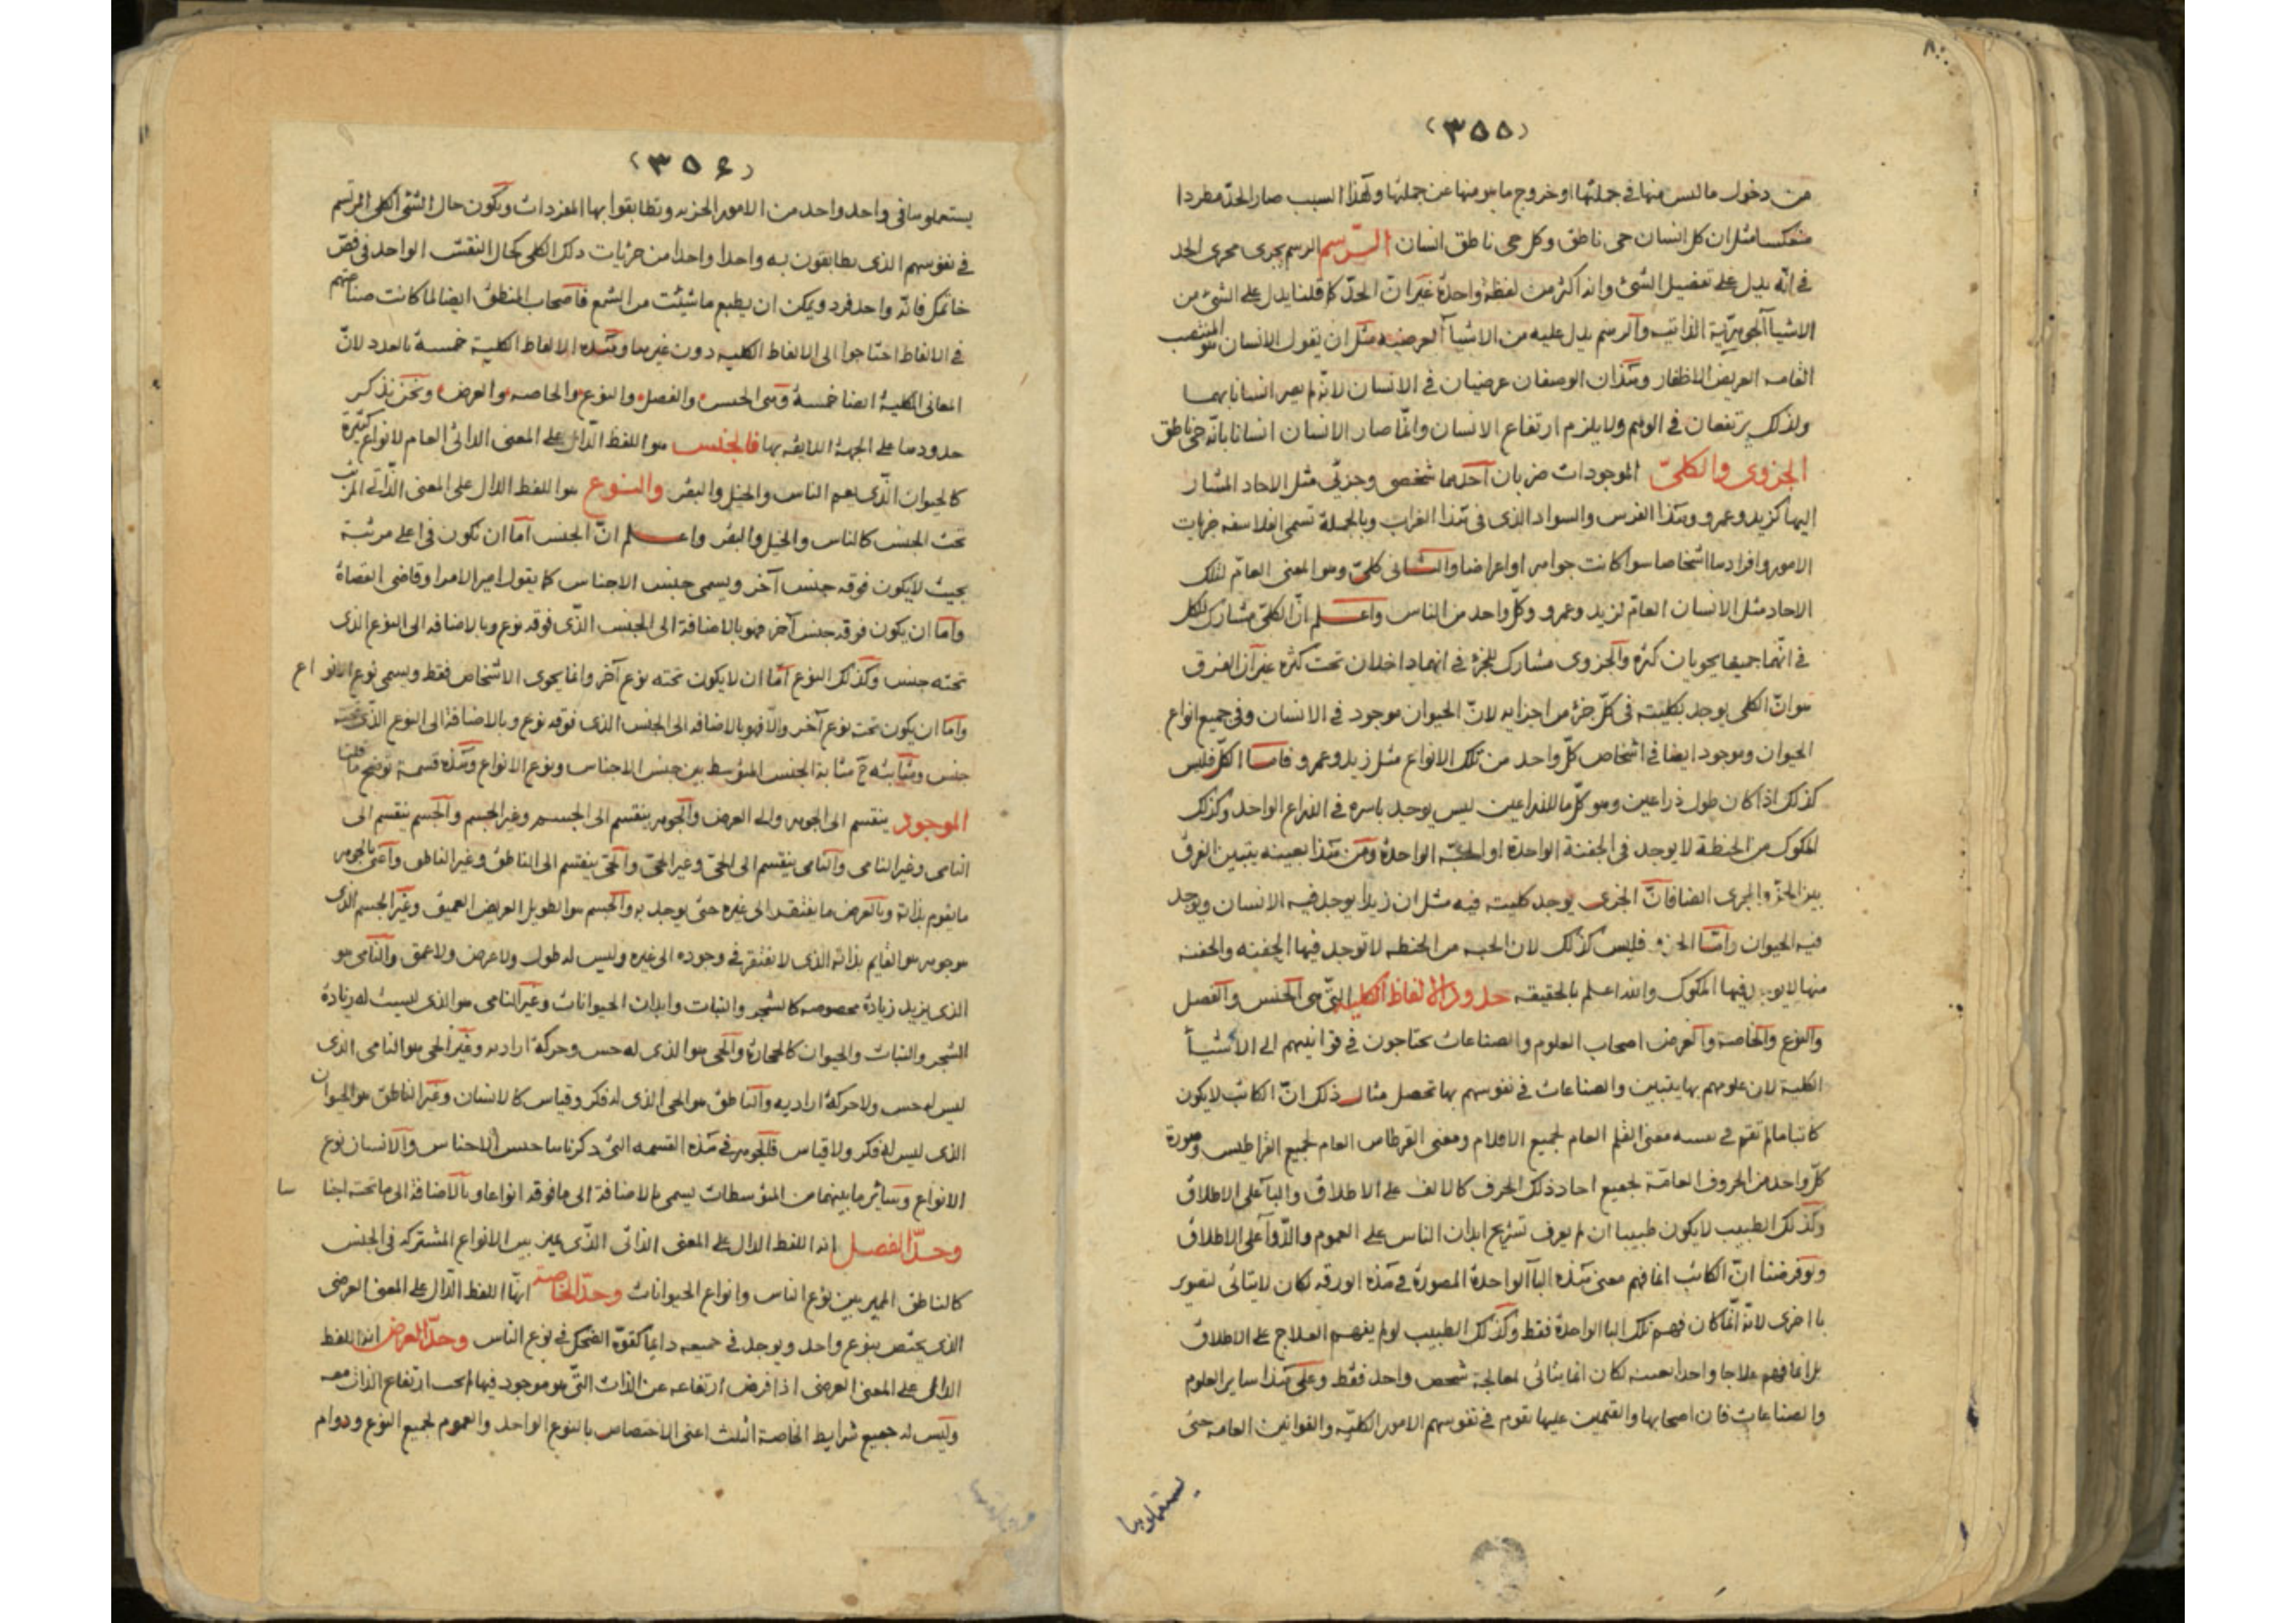 (٣٥٥)
من دخول ما ليس منها في جملتها او خروج ما هو منها عن جملتها ولهذا السبب صار الحدّ مطردا
منعكسا مثل ان كل انسان حى ناطق وكل حى ناطق انسان الرسم الرسم يجرى مجرى الحد
في انّه يدل على تفصيل الشئ وانه اكثر من لفظة واحدة غير ان الحدّ كما قلنا يدل على الشئ من
الاشيا الجوهريّة الذاتيه والرسم يدل عليه من الاشيآ العرضيه مثل ان يقول الانسان هو المنتصب
القامه العريض الاظفار وهذان الوصفان عرضيان في الانسان لانه لم يصر انسانا بهما
ولذلك يرتفعان في الوهم ولا يلزم ارتفاع الانسان وانّما صار الانسان انسانا بانّه حى ناطق
الجزوى والكلىّ الموجودات ضربان احدهما شخصى وجزئى مثل الاحاد المشار
اليها كزيد وعمرو وهذا الفرس والسواد الذى في هذا الغراب وبالجملة تسمى الفلاسفه جزيات
الامور وافرادها اشخاصا سوا كانت جواهر او اعراضا والثانى كلىّ وهو المعنى العامّ لتلك
الاحاد مثل الانسان العامّ لزيد وعمرو وكلّ واحد من الناس واعلم انّ الكلىّ مشارك للكل
في انّهما جميعا يحويان كثره والجزوى مشارك للجزء في انهما داخلان تحت كثره غير ان الفرق
هو انّ الكلى يوجد بكليته في كلّ جزء من اجزايه لانّ الحيوان موجود في الانسان وفي جميع انواع
الحيوان وموجود ايضا في اشخاص كلّ واحد من تلك الانواع مثل زيد وعمرو فاما الكلّ فليس
كذلك اذا كان طول ذراعين وهو كلّ ما للذراعين ليس يوجد باسره في الذراع الواحد وكذلك
المكوك من الحنطة لا يوجد في الجفنة الواحدة او الحبّه الواحدة ومن هذا بعينه يتبين الفرق
بين الجزؤ والجزى ايضا فانّ الجزى يوجد كليته فيه مثل ان زيدا يوجد فيه الانسان ويوجد
فيه الحيوان وامّا الجزو فليس كذلك لان الحبه من الحنطه لا توجد فيها الجفنه والجفنه
منها لا يوجد فيها المكوك والله اعلم بالحقيقه حدود الالفاظ الكليه التّى هى الجنس والفصل
والنوع والخاصة والعرض اصحاب العلوم والصناعات يحتاجون في قوانينهم الى الاشيآ
الكلية لان علومهم بها يتبين والصناعات في نفوسهم بها تحصل مثال ذلك انّ الكاتب لا يكون
كاتبا ما لم تقم في نفسه معنى القلم العام لجميع الاقلام ومعنى القرطاس العام لجميع القراطيس وصورة
كلّ واحد من الحروف العامّة لجميع احاد ذلك الحرف كالالف على الاطلاق والبآ على الاطلاق
وكذلك الطبيب لا يكون طبيبا ان لم يعرف تشريح ابدان الناس على العموم والدّوآ على الاطلاق
ولو فرضنا انّ الكاتب انما فهم معنى هذه البآ الواحدة المصورة في هذه الورقه لكان لا يتاتى لتصوير
با اخرى لانّه انّما كان فهم تلك البا الواحدة فقط وكذلك الطبيب لو لم يفهم العلاج على الاطلاق
بل انما فهم علاجا واحدا بعينه لكان انما يتاتى لمعالجة شخص واحد فقط وعلى هذا ساير العلوم
والصناعات فان اصحابها والقيمين عليها تقوم في نفوسهم الامور الكليّه والقوانين العامه حتى
يستعملوها
(٣٥٤)
يستعملوها في واحد واحد من الامور الجزيه وتطابقوا بها المفردات ويكون حال الشئ الكلى المرتسم
في نفوسهم الذى يطابقون به واحدا واحدا من جزيات ذلك الكلى كحال النقش الواحد في فصّ
خاتمك فانّه واحد فرد ويمكن ان يطبع ما شئت من الشمع فاصحاب المنطق ايضا لما كانت صناعتهم
في الالفاظ احتاجوا الى الالفاظ الكليه دون غيرها وهذه الالفاظ الكلية خمسة بالعدد لانّ
المعانى الكلية ايضا خمسة وهى الجنس والفصل والنوع والخاصه والعرض ونحن نذكر
حدودها على الجهة اللايقه بها فالجنس هو اللفظ الدّال على المعنى الذاتى العام لانواع كثيرة
كالحيوان الّذى يعم الناس والخيل والبقر والنوع هو اللفظ الدال على المعنى الذّاتى المرتب
تحت الجنس كالناس والخيل والبقر واعلم انّ الجنس امّا ان تكون في اعلى مرتبة
بحيث لا يكون فوقه جنس آخر ويسمى جنس الاجناس كما يقول امير الامرا وقاضى القضاة
وامّا ان يكون فوقه جنس آخر فهو بالاضافة الى الجنس الّذى فوقه نوع وبالاضافه الى النوع الذى
تحته جنس وكذلك النوع امّا ان لا يكون تحته نوع آخر وانما يحوى الاشخاص فقط ويسمى نوع الانواع
وامّا ان يكون تحته نوع آخر والّا فهو بالاضافه الى الجنس الذى فوقه نوع وبالاضافة الى النوع الذى تحته
جنس ومثابته ح مثابة الجنس المتوسط بين جنس الاجناس ونوع الانواع وهذه قسمة توضح ما قلنا
الموجود ينقسم الى الجوهر والى العرض والجوهر ينقسم الى الجسم وغير الجسم والجسم ينقسم الى
النامى وغير النامى والنامى ينقسم الى الحىّ وغير الحىّ والحىّ ينقسم الى الناطق وغير الناطق واعنى بالجوهر
ما يقوم بذاته وبالعرض ما يفتقر الى غيره حتى يوجد به والجسم هو الطويل العريض العميق وغير الجسم الذى
هو جوهر هو القايم بذاته الذى لا يفتقر في وجوده الى غيره وليس له طول ولا عرض ولا عمق والنامى هو
الذى يزيد زيادة مخصوصه كالشجر والنبات وابدان الحيوانات وغير النامى هو الذى ليست له زيادة
الشجر والنبات والحيوان كالحجارة والحى هو الذى له حس وحركة اراديه وغير الحى هو النامى الذى
ليس له حس ولا حركة اراديه والناطق هو الحى الذى له فكر وقياس كالانسان وغير الناطق هو الحيوان
الذى ليس له فكر ولا قياس فالجوهر في هذه القسمه التى ذكرناها جنس الاجناس والانسان نوع
الانواع وسائر ما بينهما من المتوسطات يسمى بالاضافة الى ما فوقه انواعا وبالاضافة الى ما تحته اجناسا
وحدّ الفصل انه اللفظ الدال على المعنى الذاتى الّذى يميز بين الانواع المشتركه في الجنس
كالناطق المميز بين نوع الناس وانواع الحيوانات وحدّ الخاصة انهّا اللفظ الدّال على المعنى العرضى
الذى يختص بنوع واحد ويوجد في جميعه دايما كقوّة الضحك في نوع الناس وحدّ العرض انه اللفظ
الدال على المعنى العرضى اذا فرض ارتفاعه عن الذات التّى هو موجود فيها لم يجب ارتفاع الذات معه
وليس له جميع شرايط الخاصة الثلث اعنى الاختصاص بالنوع الواحد والعموم لجميع النوع ودوام